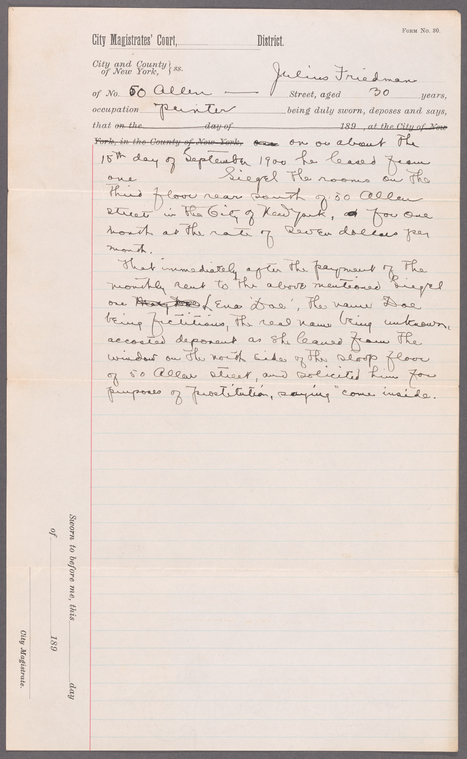 FORM No. 36.
City Magistrates' Court, District.
City and County
of New York, } ss.
Julius Friedman
of No. 50 Allen — Street, aged 30 years,
occupation Painter being duly sworn, deposes and says,
that on the day of 189 , at the City of New
York, in the County of New York, on or about the
15th day of September 1900 he leased from
one Siegel the rooms on the
third floor rear south of 50 Allen
street in the City of New York, for one
month at the rate of seven dollars per
month.
That immediately after the payment of the
monthly rent to the above mentioned Siegel
one "Ena Doe", the name Doe
being fictitious, the real name being unknown,
accosted deponent as she leaned from the
window on the north side of the stoop floor
of 50 Allen street, and solicited him for
purposes of prostitution, saying "come inside.
Sworn to before me, this day
of 189
City Magistrate.